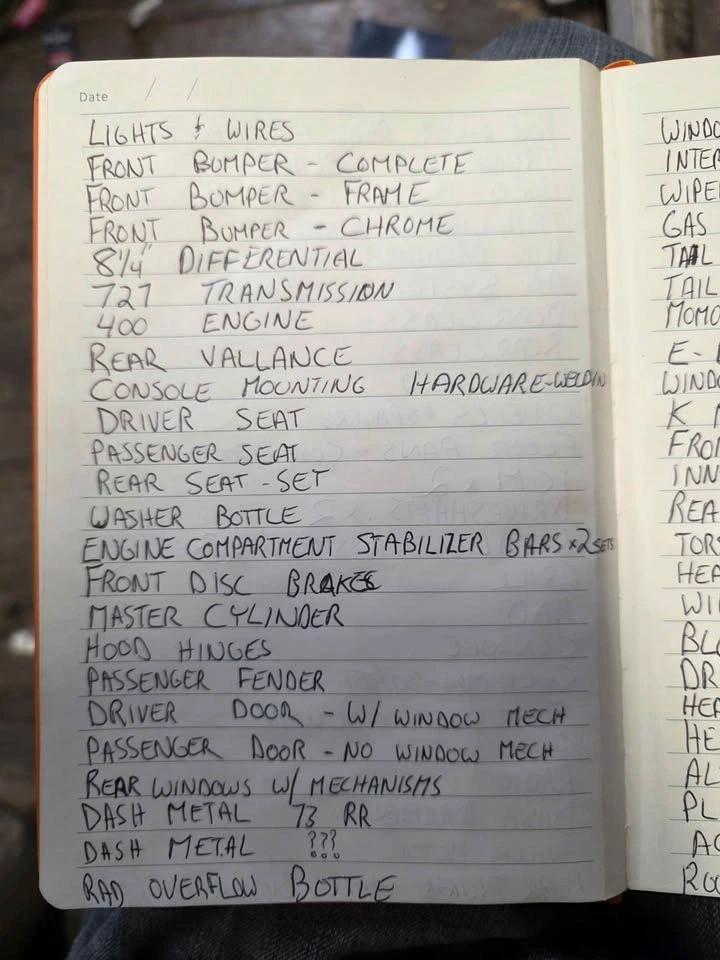 Date / /
LIGHTS & WIRES
FRONT BUMPER - COMPLETE
FRONT BUMPER - FRAME
FRONT BUMPER - CHROME
8 1/4" DIFFERENTIAL
727 TRANSMISSION
400 ENGINE
REAR VALLANCE
CONSOLE MOUNTING HARDWARE-WELDIN
DRIVER SEAT
PASSENGER SEAT
REAR SEAT - SET
WASHER BOTTLE
ENGINE COMPARTMENT STABILIZER BARS x2 SETS
FRONT DISC BRAKES
MASTER CYLINDER
HOOD HINGES
PASSENGER FENDER
DRIVER DOOR - W/ WINDOW MECH
PASSENGER DOOR - NO WINDOW MECH
REAR WINDOWS W/ MECHANISMS
DASH METAL 73 RR
DASH METAL ???
RAD OVERFLOW BOTTLE
WINDO
INTER
WIPE
GAS
TAIL
TAIL
MOMO
E-
WINDO
K
FRO
INN
REA
TOR
HEA
WI
BLO
DR
HEA
HE
AL
PL
AC
RO